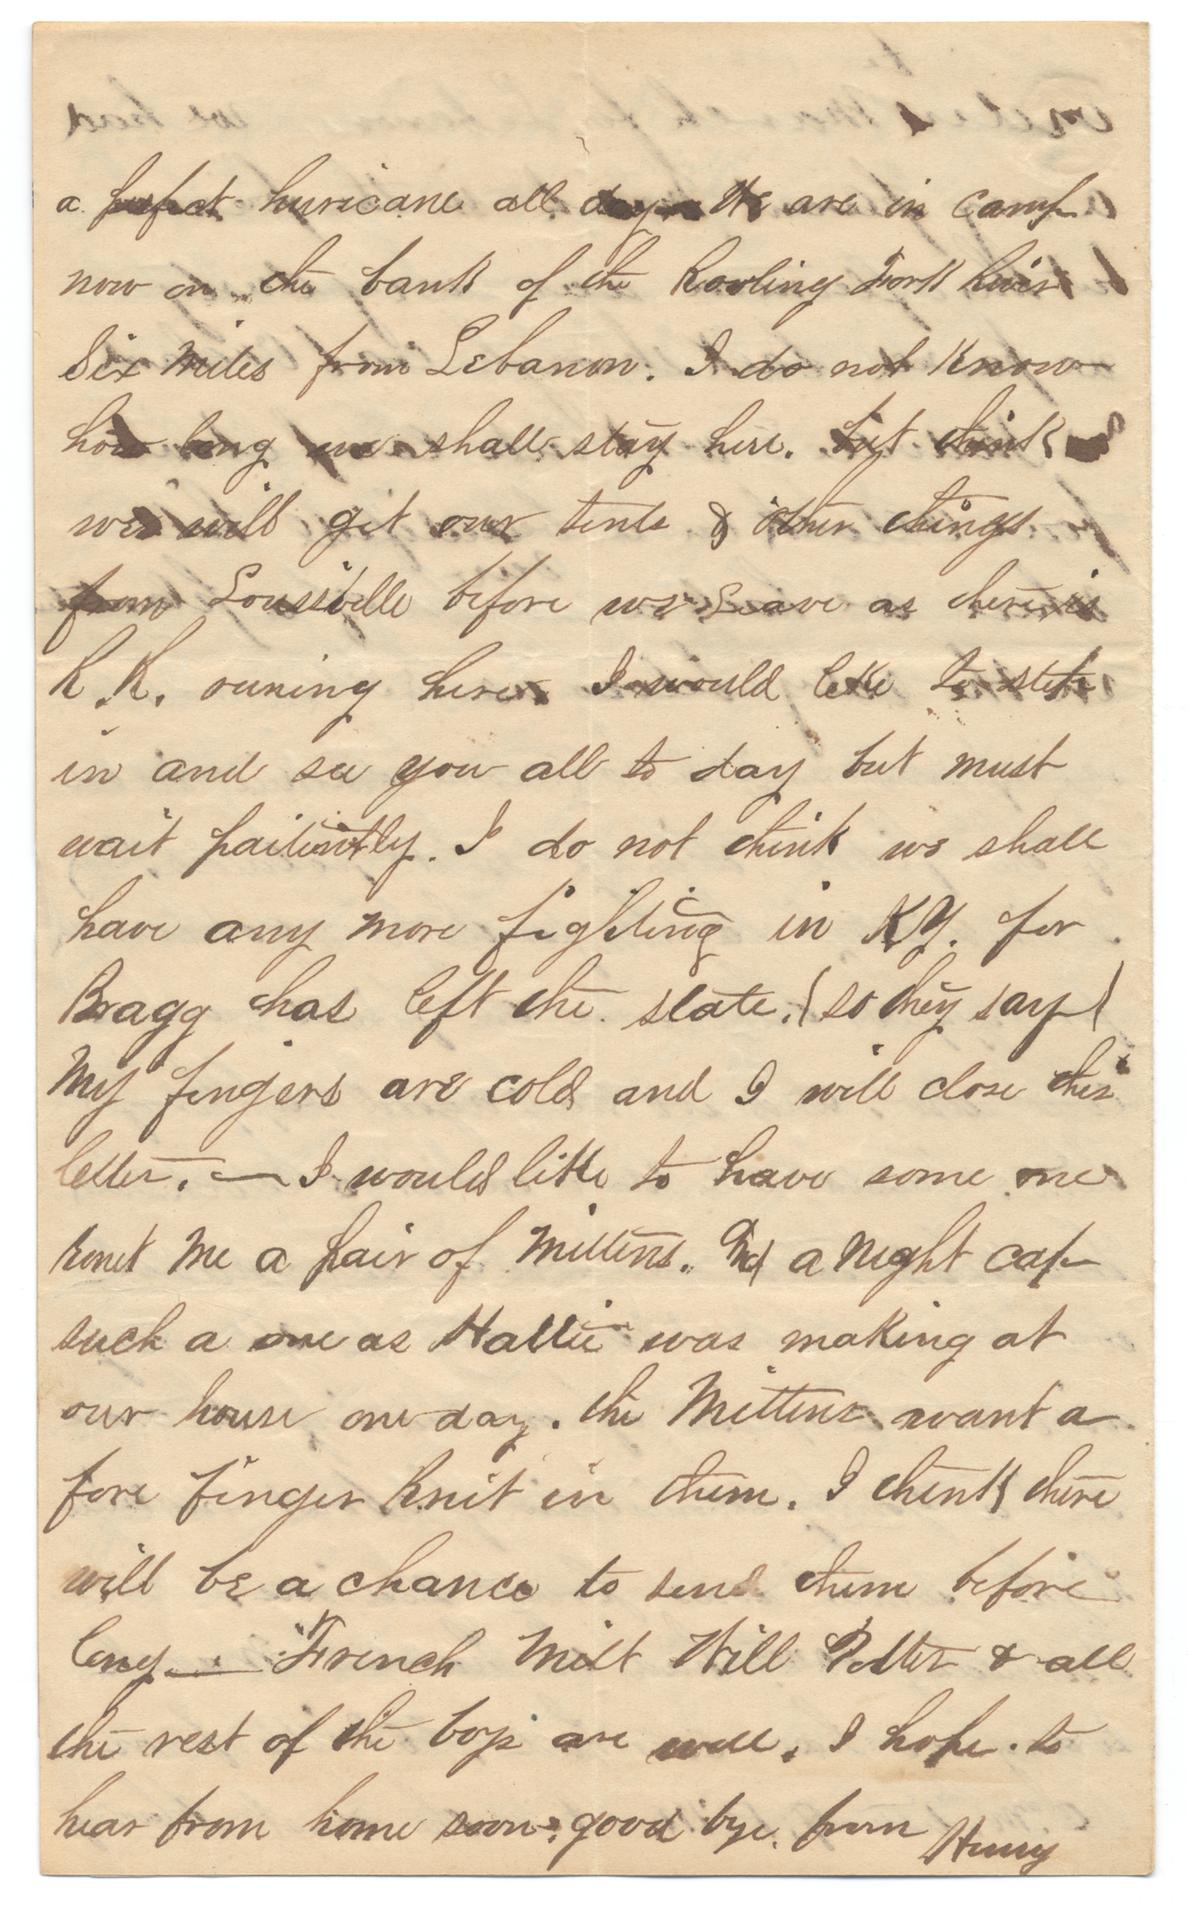 a perfect huricane all day We are in camp
now on the bank of the Rowling Fork River
Six Miles from Lebanon. I do not Know
how long we shall stay here. but think
we will git our tents & other things
from Louisville before we Leave as there is
R. R. runing here. I would like to step
in and see you all to day but must
wait paitiently. I do not think we shall
have any more fighting in KY. for
Bragg has left the state. (so they say)
My fingers are cold and I will close this
letter. — I would like to have some one
knit Me a pair of Mittens. And a Night cap
such a one as Hattie was making at
our house one day. the Mittens want a
fore finger knit in them. I think there
will be a chance to send them before
long — French Milt Will Potter & all
the rest of the boys are well. I hope to
hear from home soon. good bye. from Henry